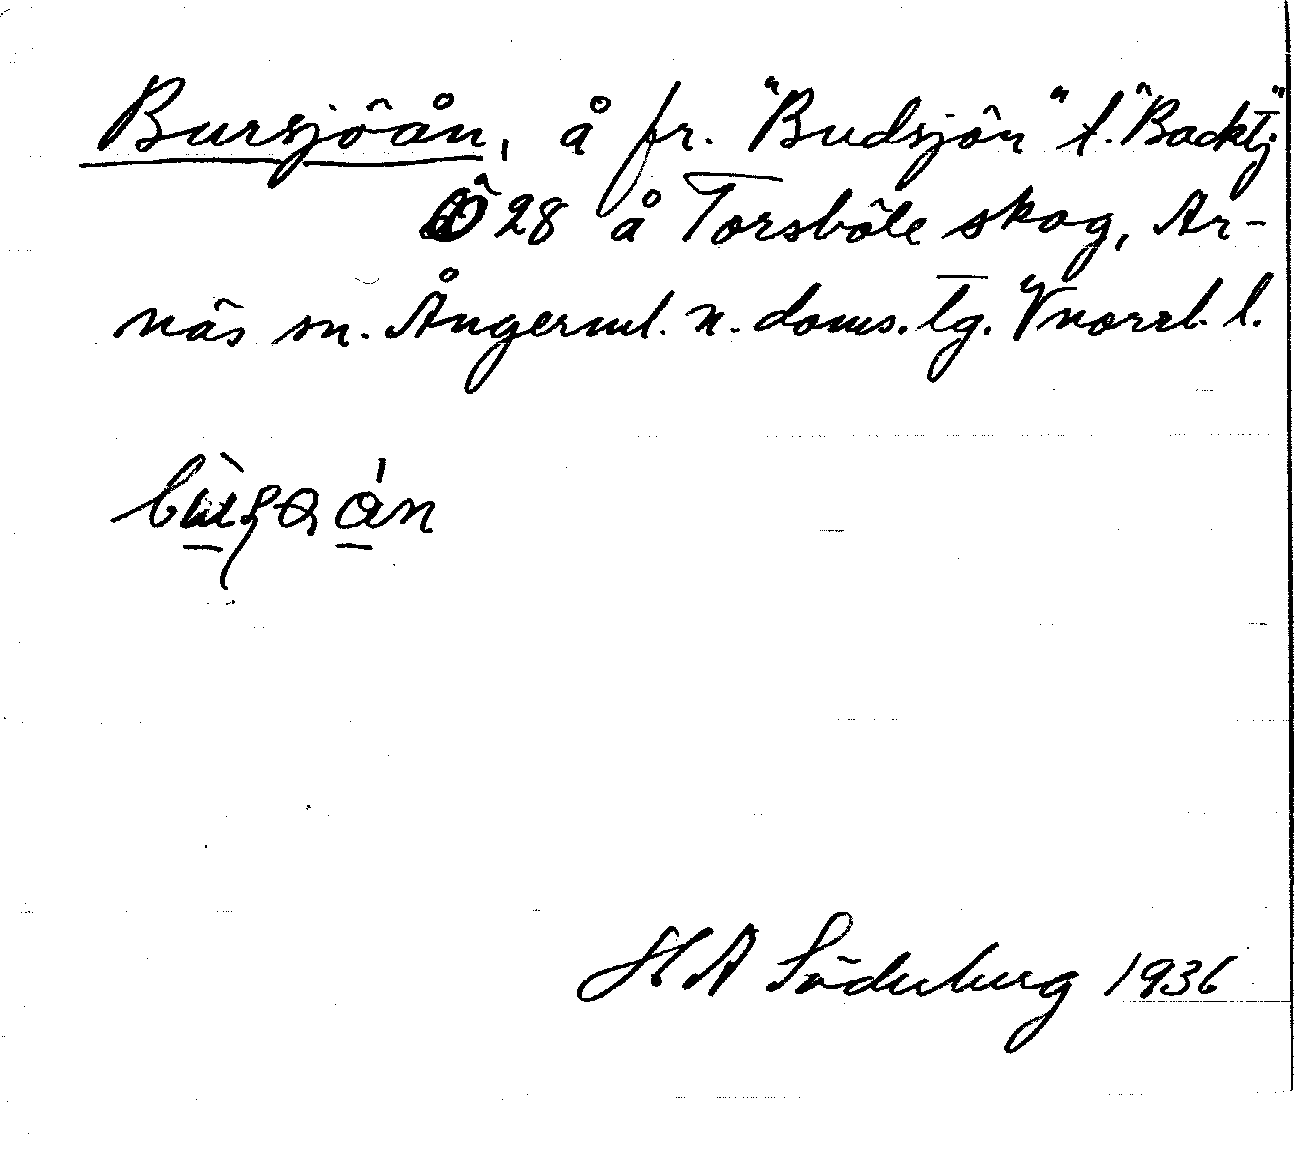 Bursjöån, å fr. "Budsjön" t. "Backtj"
Ö 28 å Torsböle skog, Ar-
näs sn. Ångerml. n. doms. tg. Vnorrl. l.
H A Söderberg 1936